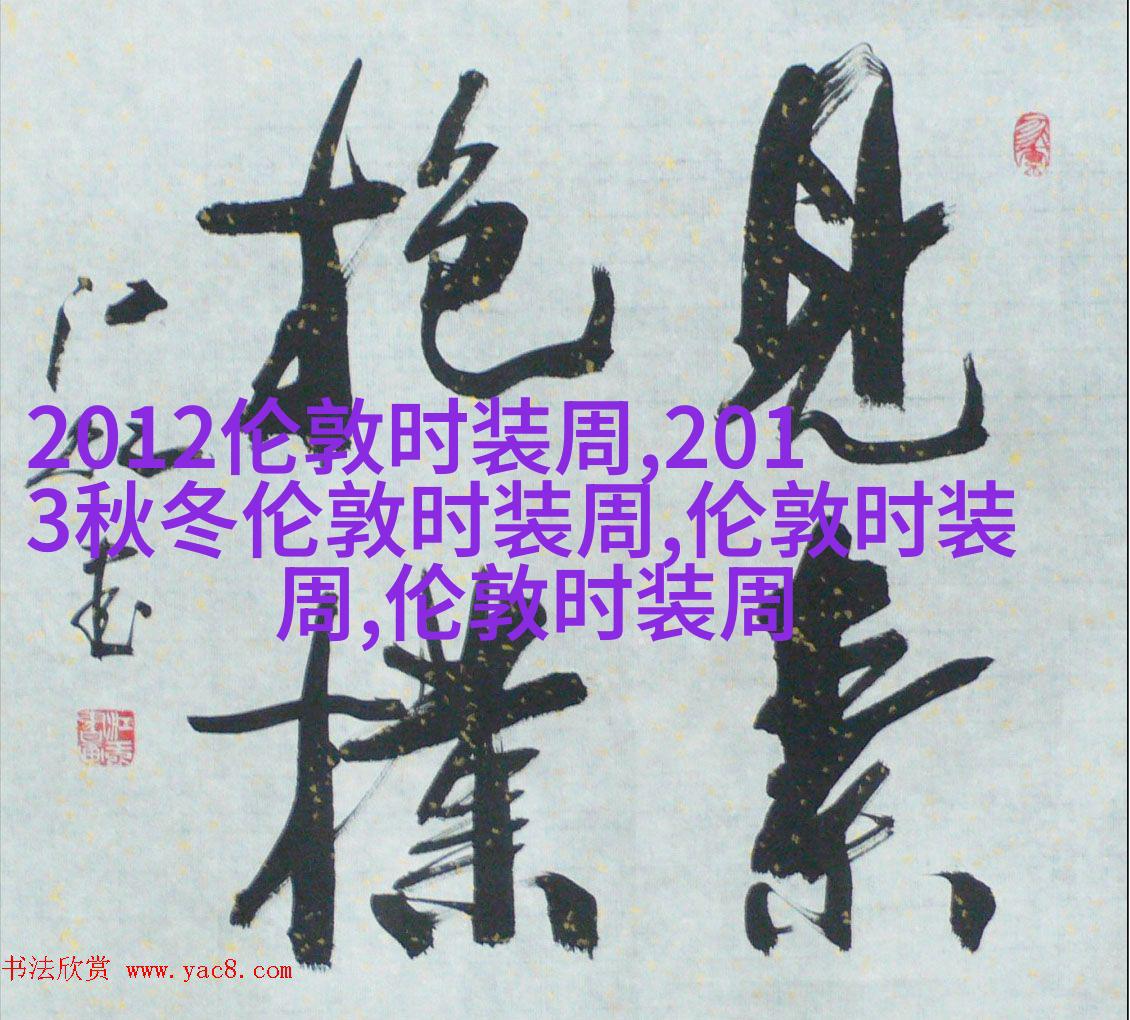 見素
抱樸
江
書
2012伦敦时装周,201
3秋冬伦敦时装周,伦敦时装
周,伦敦时装周
书法欣赏 www.yac8.com